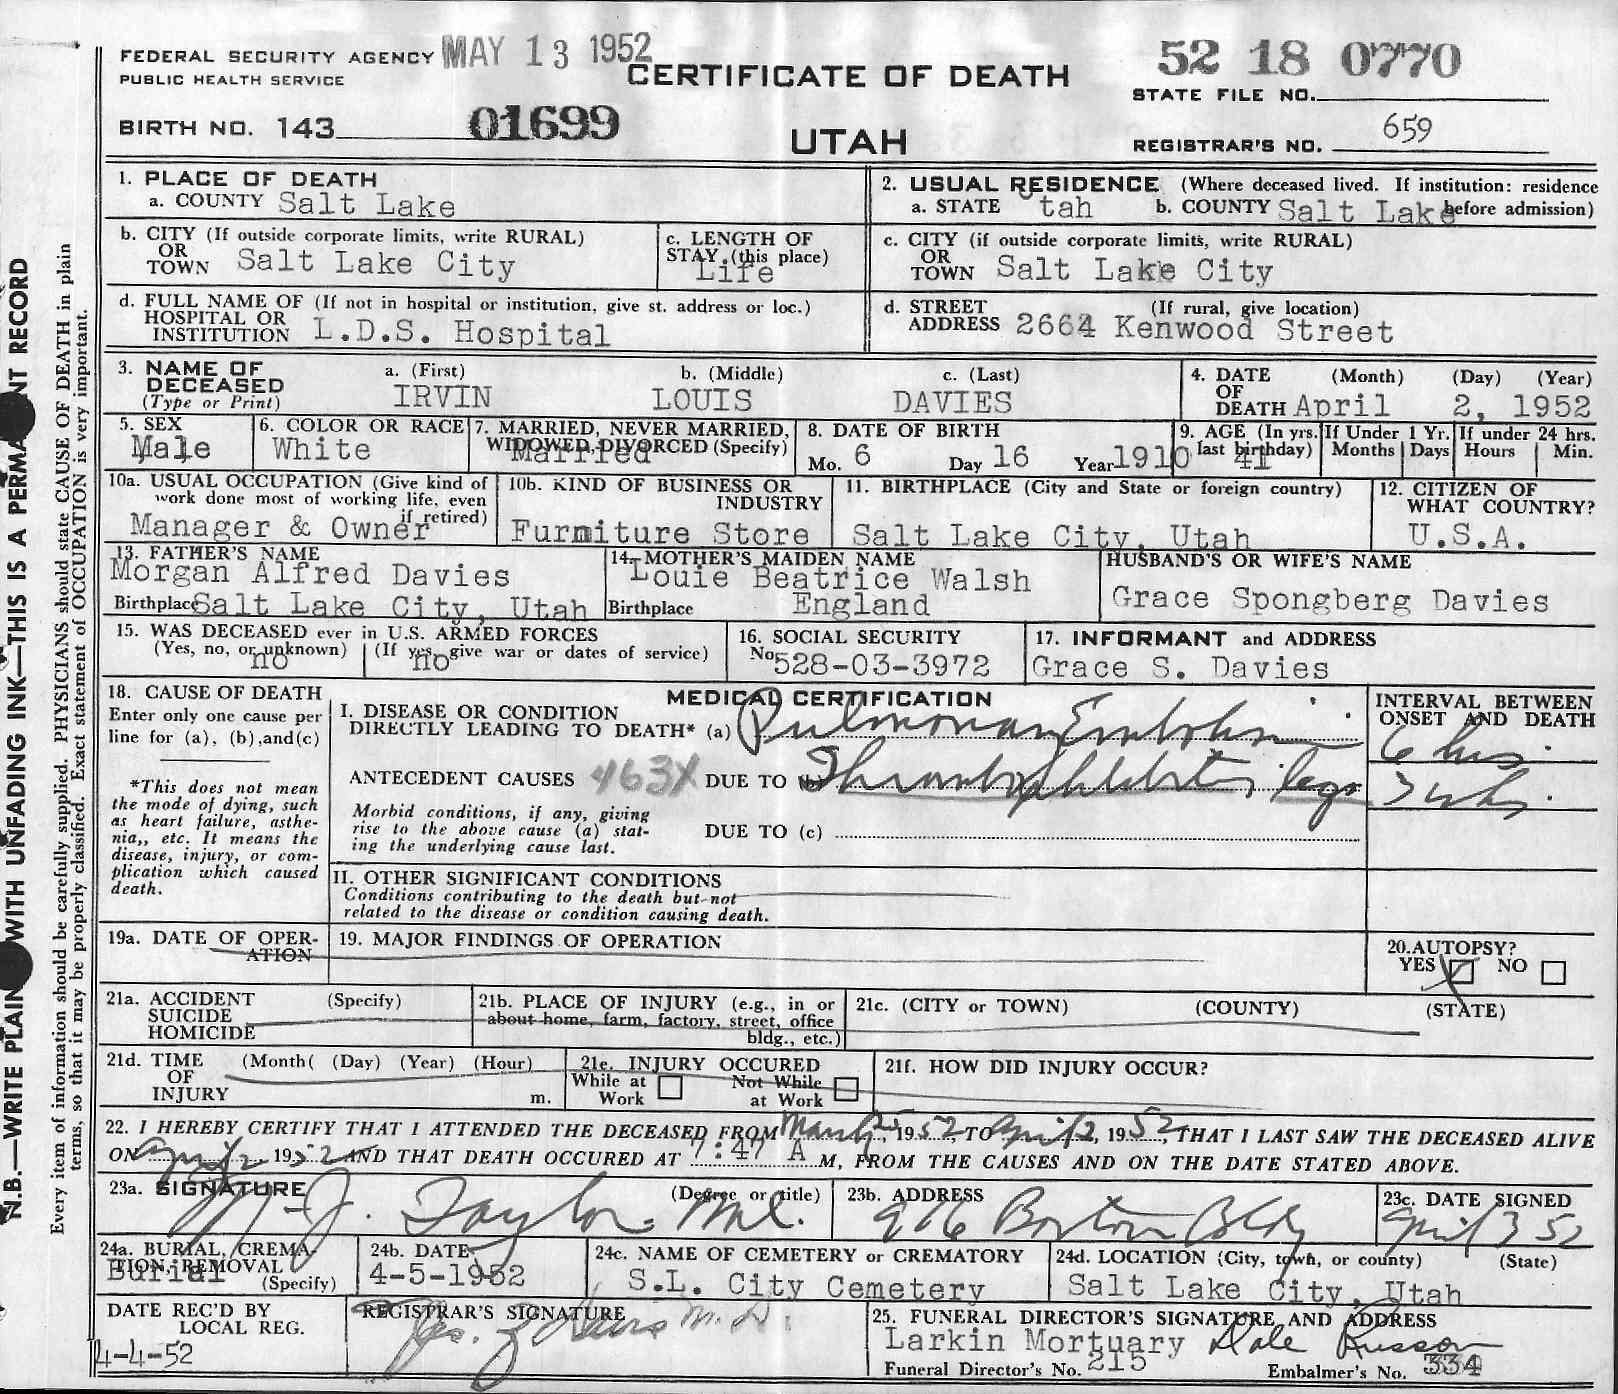 FEDERAL SECURITY AGENCY MAY 13 1952
PUBLIC HEALTH SERVICE
CERTIFICATE OF DEATH
52 18 0770
STATE FILE NO.
BIRTH NO. 143 01699
UTAH
REGISTRAR'S NO. 659
1. PLACE OF DEATH
a. COUNTY Salt Lake
2. USUAL RESIDENCE (Where deceased lived. If institution: residence before admission)
a. STATE Utah b. COUNTY Salt Lake
b. CITY (If outside corporate limits, write RURAL)
OR TOWN Salt Lake City
c. LENGTH OF STAY (this place)
Life
c. CITY (if outside corporate limits, write RURAL)
OR TOWN Salt Lake City
d. FULL NAME OF (If not in hospital or institution, give st. address or loc.)
HOSPITAL OR
INSTITUTION L.D.S. Hospital
d. STREET (If rural, give location)
ADDRESS 2664 Kenwood Street
3. NAME OF DECEASED
(Type or Print)
a. (First) b. (Middle) c. (Last)
IRVIN LOUIS DAVIES
4. DATE OF DEATH (Month) (Day) (Year)
April 2, 1952
5. SEX
Male
6. COLOR OR RACE
White
7. MARRIED, NEVER MARRIED,
WIDOWED, DIVORCED (Specify)
Married
8. DATE OF BIRTH
Mo. 6 Day 16 Year 1910
9. AGE (In yrs. last birthday) 41
If Under 1 Yr.
Months Days
If under 24 hrs.
Hours Min.
10a. USUAL OCCUPATION (Give kind of
work done most of working life, even
if retired)
Manager & Owner
10b. KIND OF BUSINESS OR
INDUSTRY
Furniture Store
11. BIRTHPLACE (City and State or foreign country)
Salt Lake City, Utah
12. CITIZEN OF
WHAT COUNTRY?
U.S.A.
13. FATHER'S NAME
Morgan Alfred Davies
Birthplace Salt Lake City, Utah
14. MOTHER'S MAIDEN NAME
Louie Beatrice Walsh
Birthplace England
HUSBAND'S OR WIFE'S NAME
Grace Spongberg Davies
15. WAS DECEASED ever in U.S. ARMED FORCES
(Yes, no, or unknown) (If yes, give war or dates of service)
no no
16. SOCIAL SECURITY
No. 528-03-3972
17. INFORMANT and ADDRESS
Grace S. Davies
18. CAUSE OF DEATH
Enter only one cause per
line for (a), (b), and (c)
*This does not mean
the mode of dying, such
as heart failure, asthe-
nia,, etc. It means the
disease, injury, or com-
plication which caused
death.
MEDICAL CERTIFICATION
I. DISEASE OR CONDITION
DIRECTLY LEADING TO DEATH* (a) Pulmonary Embolism
ANTECEDENT CAUSES 463X DUE TO (b) Thrombophlebitis, legs
Morbid conditions, if any, giving
rise to the above cause (a) stat-
ing the underlying cause last.
DUE TO (c)
INTERVAL BETWEEN
ONSET AND DEATH
6 hrs.
3 wks.
II. OTHER SIGNIFICANT CONDITIONS
Conditions contributing to the death but not
related to the disease or condition causing death.
19a. DATE OF OPER-
ATION
19. MAJOR FINDINGS OF OPERATION
20. AUTOPSY?
YES X NO
21a. ACCIDENT (Specify)
SUICIDE
HOMICIDE
21b. PLACE OF INJURY (e.g., in or
about home, farm, factory, street, office
bldg., etc.)
21c. (CITY or TOWN) (COUNTY) (STATE)
21d. TIME (Month( (Day) (Year) (Hour)
OF
INJURY m.
21e. INJURY OCCURED
While at Work Not While at Work
21f. HOW DID INJURY OCCUR?
22. I HEREBY CERTIFY THAT I ATTENDED THE DECEASED FROM March 25, 1952 TO April 2, 1952, THAT I LAST SAW THE DECEASED ALIVE
ON April 2 1952 AND THAT DEATH OCCURED AT 7:47 A M, FROM THE CAUSES AND ON THE DATE STATED ABOVE.
23a. SIGNATURE (Degree or title)
J. Taylor M.D.
23b. ADDRESS
Boston Bldg
23c. DATE SIGNED
April 3 52
24a. BURIAL, CREMA-
TION, REMOVAL
(Specify)
Burial
24b. DATE
4-5-1952
24c. NAME OF CEMETERY or CREMATORY
S.L. City Cemetery
24d. LOCATION (City, town, or county) (State)
Salt Lake City, Utah
DATE REC'D BY
LOCAL REG.
4-4-52
REGISTRAR'S SIGNATURE
M.D.
25. FUNERAL DIRECTOR'S SIGNATURE AND ADDRESS
Larkin Mortuary Dale Russon
Funeral Director's No. 215 Embalmer's No. 334
N.B.—WRITE PLAIN WITH UNFADING INK—THIS IS A PERMANENT RECORD
Every item of information should be carefully supplied. PHYSICIANS should state CAUSE OF DEATH in plain
terms, so that it may be properly classified. Exact statement of OCCUPATION is very important.